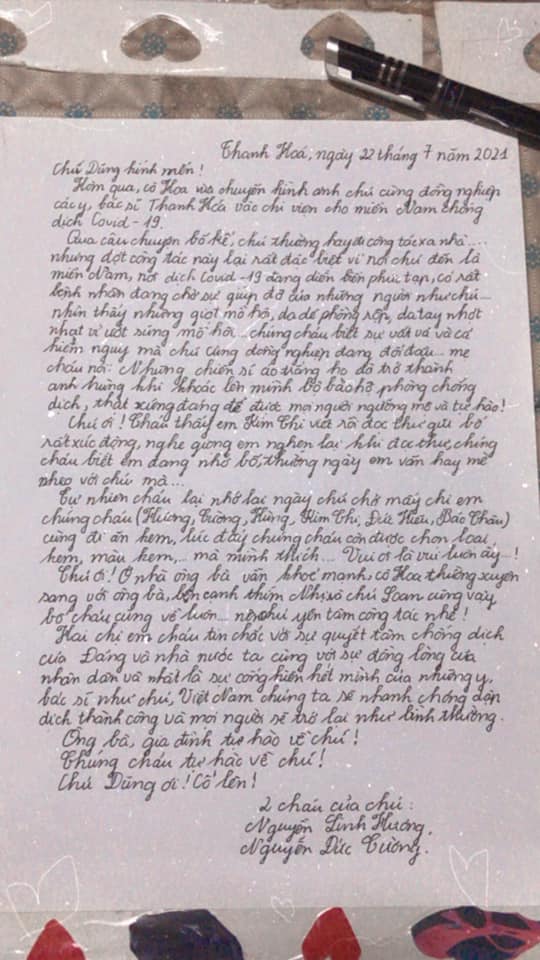 Thanh Hoá, ngày 22 tháng 7 năm 2021
Chú Dũng kính mến!
Hôm qua, cô Hoa vừa chuyển hình ảnh chú cùng đồng nghiệp
các y, bác sĩ Thanh Hóa vào chi viện cho miền Nam chống
dịch Covid-19.
Qua câu chuyện bố kể, chú thường hay đi công tác xa nhà....
nhưng đợt công tác này lại rất đặc biệt vì nơi chú đến là
miền Nam, nơi dịch Covid-19 đang diễn biến phức tạp, có rất
bệnh nhân đang chờ sự giúp đỡ của những người như chú...
nhìn thấy những giọt mồ hôi, da dẻ phồng rộp, da tay nhợt
nhạt vì ướt sũng mồ hôi... chúng cháu biết sự vất vả và cả
hiểm nguy mà chú cùng đồng nghiệp đang đối đầu... mẹ
cháu nói: Những chiến sĩ áo trắng họ đã trở thành
anh hùng khi khoác lên mình bộ bảo hộ phòng chống
dịch, thật xứng đáng để được mọi người ngưỡng mộ và tự hào!
Chú ơi! Cháu thấy em Kim Chi viết rồi đọc thư gửi bố
rất xúc động, nghe giọng em nghẹn lại khi đọc thư, chúng
cháu biết em đang nhớ bố, thường ngày em vẫn hay mè
nheo với chú mà...
Tự nhiên cháu lại nhớ lại ngày chú chở mấy chị em
chúng cháu (Hương, Tường, Hùng, Kim Chi, Đức Hiếu, Bảo Châu)
cùng đi ăn kem, lúc đấy chúng cháu còn được chọn loại
kem, màu kem,... mà mình thích... Vui ơi là vui luôn ấy...!
Chú ơi! Ở nhà ông bà vẫn khoẻ mạnh, cô Hoa thường xuyên
sang với ông bà, bên cạnh thím Nhị và chú Loan cũng vậy
bố cháu cũng về luôn... nên chú yên tâm công tác nhé!
Hai chị em cháu tin chắc với sự quyết tâm chống dịch
của Đảng và nhà nước ta cùng với sự đồng lòng của
nhân dân và nhất là sự cống hiến hết mình của những y,
bác sĩ như chú, Việt Nam chúng ta sẽ nhanh chóng dập
dịch thành công và mọi người sẽ trở lại như bình thường.
Ông bà, gia đình tự hào về chú!
Chúng cháu tự hào về chú!
Chú Dũng ơi! Cố lên!
2 cháu của chú:
Nguyễn Linh Hương.
Nguyễn Đức Tường.